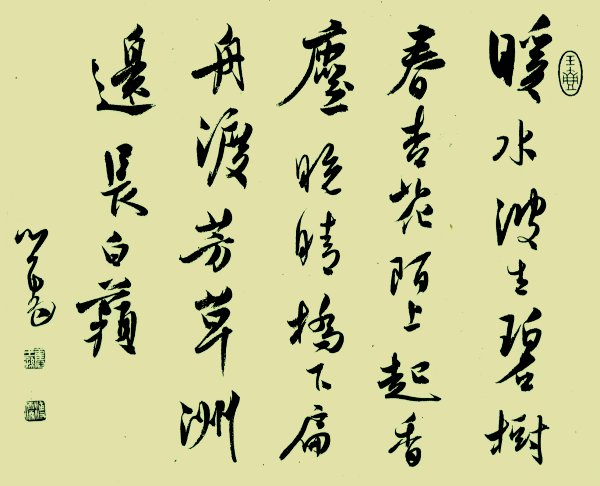 暖水波生碧樹
春杏花陌上起香
塵晚晴橋下扁
舟渡芳草洲
邊長白蘋
心畬